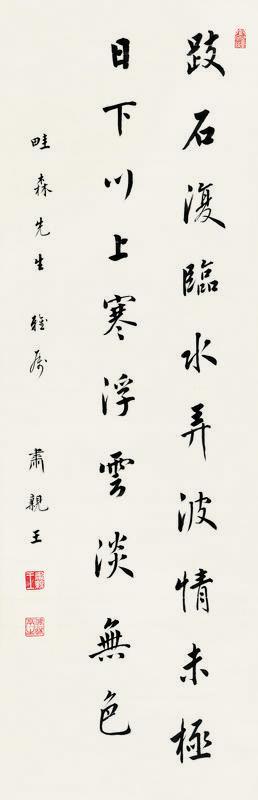 跂石復臨水弄波情未極
日下川上寒浮雲淡無色
畦森先生 雅屬 肅親王